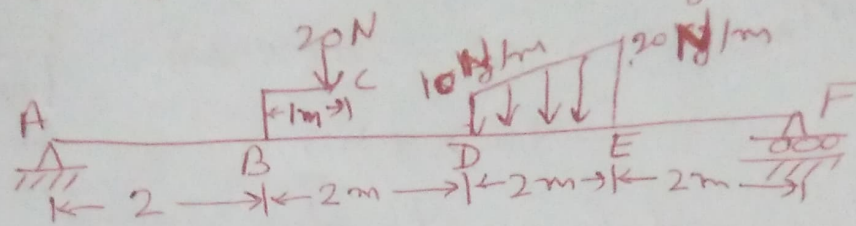 20N
10 N/m 20 N/m
1m C
A F
B D E
2 2m 2m 2m